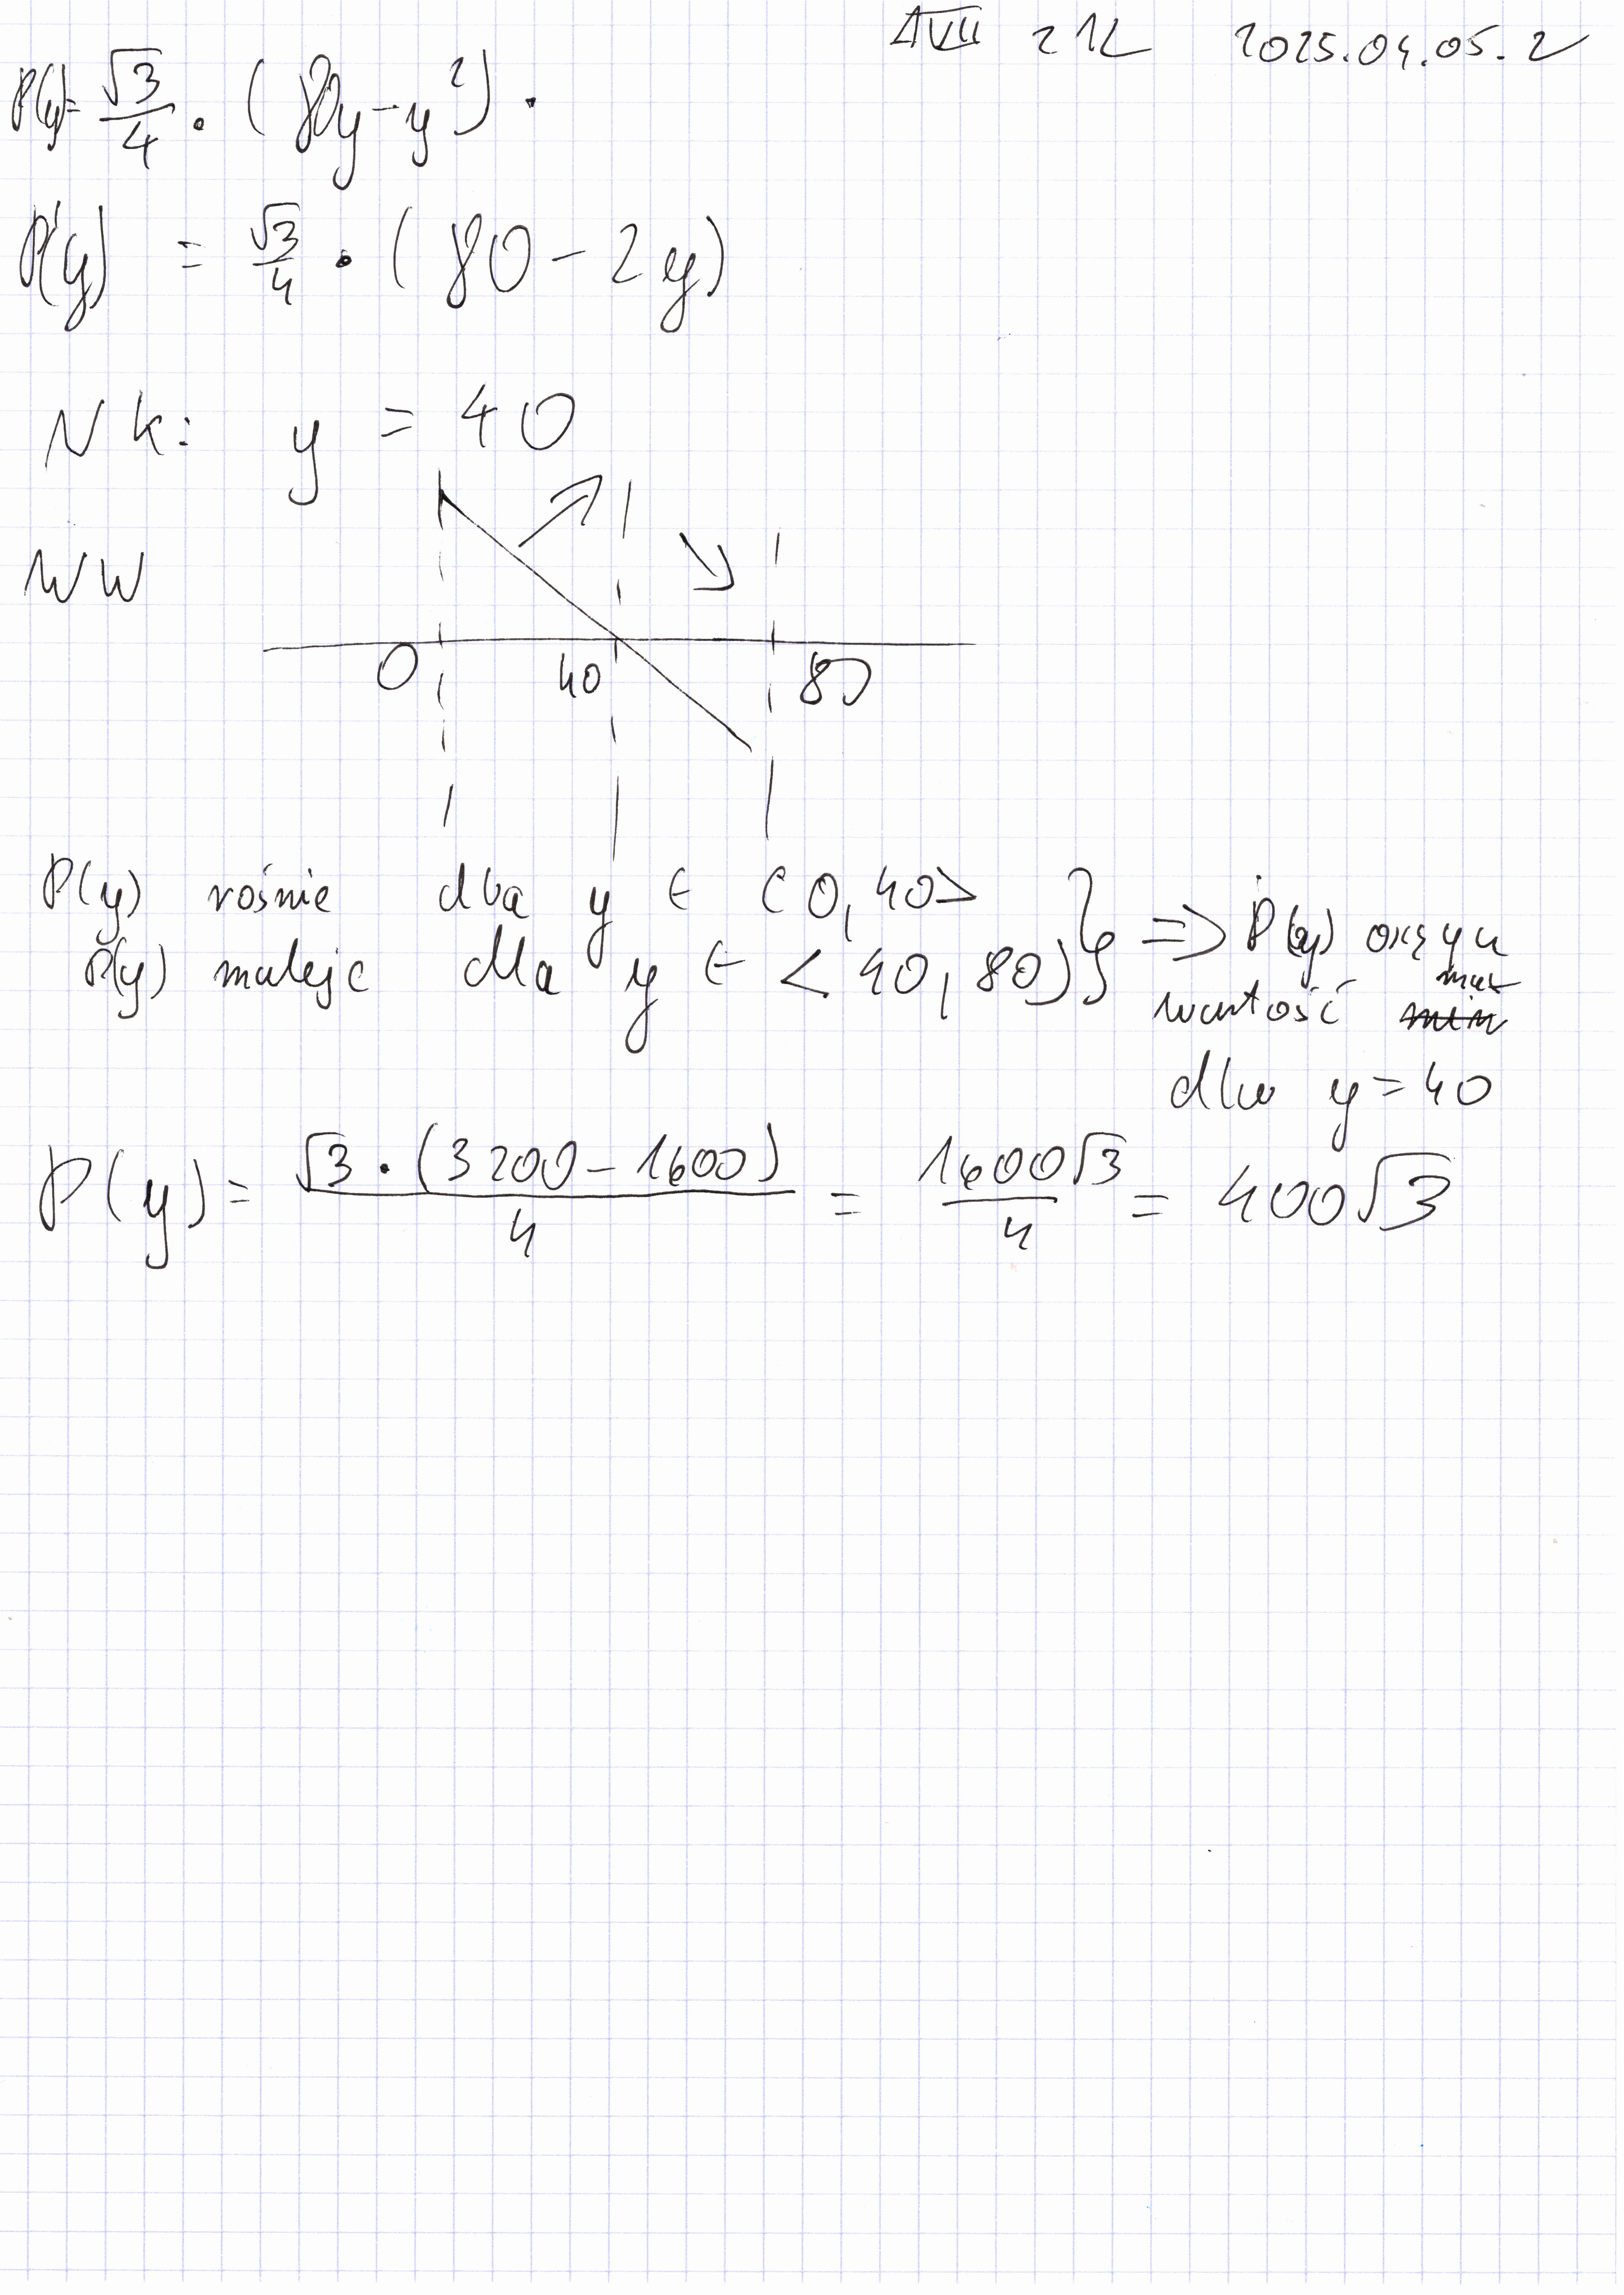 AVII z 12 2025.04.05.2
P(y)= √3/4 · (80y-y²) ·
P'(y) = √3/4 · (80-2y)
NK: y = 40
WW
0 40 80
P(y) rośnie dla y ∈ (0,40>
P(y) maleje dla y ∈ <40,80) } => P(y) osąga
wartość max min
dla y=40
P(y)= √3·(3200-1600)/4 = 1600√3/4 = 400√3